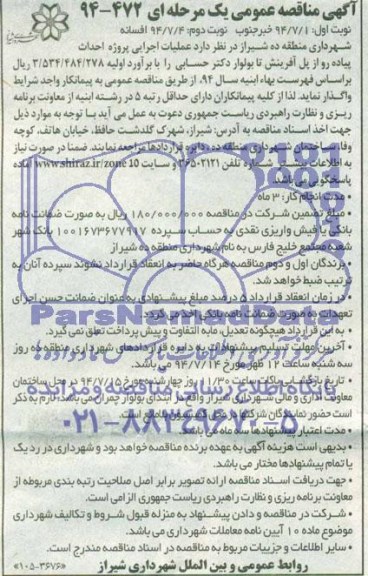 آگهی مناقصه عمومی یک مرحله ای ۴۷۲-۹۴
نوبت اول: ۹۴/۷/۱ خبرجنوب نوبت دوم: ۹۴/۷/۴ افسانه
شهرداری منطقه ده شیراز در نظر دارد عملیات اجرایی پروژه احداث
پیاده رو از پل آفرینش تا بولوار دکتر حسابی را با برآورد اولیه ۳/۵۳۴/۴۸۴/۲۷۸ ریال
براساس فهرست بهاء ابنیه سال ۹۴، از طریق مناقصه عمومی به پیمانکار واجد شرایط
واگذار نماید. لذا از کلیه پیمانکاران دارای حداقل رتبه ۵ در رشته ابنیه از معاونت برنامه
ریزی و نظارت راهبردی ریاست جمهوری دعوت به عمل می آید با توجه به موارد ذیل
جهت اخذ اسناد مناقصه به آدرس: شیراز، شهرک گلدشت حافظ، خیابان هاتف، کوچه
وفایی، ساختمان شهرداری منطقه ده، دایره قراردادها مراجعه نمایند. ضمنا در صورت نیاز
به اطلاعات بیشتر شماره تلفن ۳۶۵۰۲۱۲۱ و سایت www.shiraz.ir/zone 10 آماده
پاسخگویی می باشد.
مدت انجام کار: ۳ ماه
• مبلغ تضمین شرکت در مناقصه ۱۸۰/۰۰۰/۰۰۰ ریال به صورت ضمانت نامه
بانکی یا فیش واریزی نقدی به حساب سپرده ۱۰۰۱۶۷۳۶۷۷۹۱۷ بانک شهر
شعبه مجتمع خلیج فارس به نام شهرداری منطقه ده شیراز
• برندگان اول و دوم مناقصه هرگاه حاضر به انعقاد قرارداد نشوند سپرده آنان به
ترتیب ضبط خواهد شد.
• در زمان انعقاد قرارداد ۵ درصد مبلغ پیشنهادی به عنوان ضمانت حسن اجرای
تعهدات به صورت ضمانت نامه بانکی اخذ می گردد.
• به این قرارداد هیچگونه تعدیل، مابه التفاوت و پیش پرداخت تعلق نمی گیرد.
• آخرین مهلت تسلیم پیشنهادات به دایره قراردادهای شهرداری منطقه ده روز
سه شنبه ساعت ۱۲ ظهر مورخ ۹۴/۷/۱۴ می باشد.
• تاریخ بازگشایی پاکات ساعت ۱۱/۳۰ روز چهارشنبه مورخ ۹۴/۷/۱۵ در محل ساختمان
معاونت اداری و مالی شهرداری شیراز واقع در ابتدای بولوار چمران می باشد، لازم به ذکر
است حضور نمایندگان شرکتها در محل کمیسیون بلامانع است.
• مدت اعتبار پیشنهادها سه ماه می باشد.
• بدیهی است هزینه آگهی به عهده برنده مناقصه خواهد بود و شهرداری در رد یک
یا تمام پیشنهادها مختار می باشد.
• جهت دریافت اسناد مناقصه ارائه تصویر برابر اصل صلاحیت رتبه بندی مربوطه از
معاونت برنامه ریزی و نظارت راهبردی ریاست جمهوری الزامی است.
• شرکت در مناقصه و دادن پیشنهاد به منزله قبول شروط و تکالیف شهرداری
موضوع ماده ۱۰ آیین نامه معاملات شهرداری می باشد.
• سایر اطلاعات و جزییات مربوط به مناقصه در اسناد مناقصه مندرج است.
روابط عمومی و بین الملل شهرداری شیراز
«۱۰۵-۳۶۷۶»
ParsNamadData
پایگاه اطلاع رسانی مناقصه و مزایده
۰۲۱-۸۸۳۴۹۶۷۰-۵